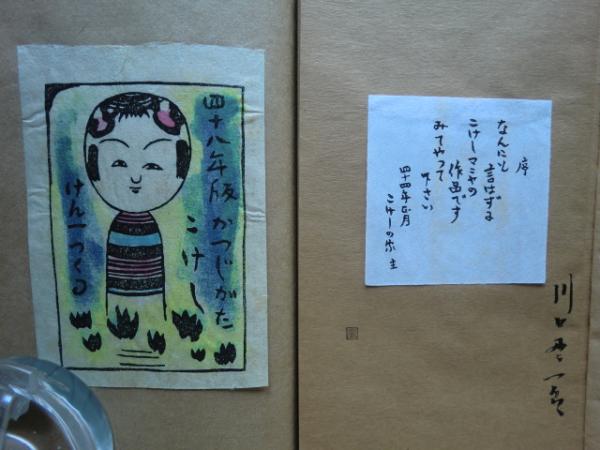 四十八年版 かつじがた
こけし
けん一つくる
序
なんにも
言はずに
こけしマニヤの
作画です
みてやって
下さい
四十四年正月
こけしの 主
川